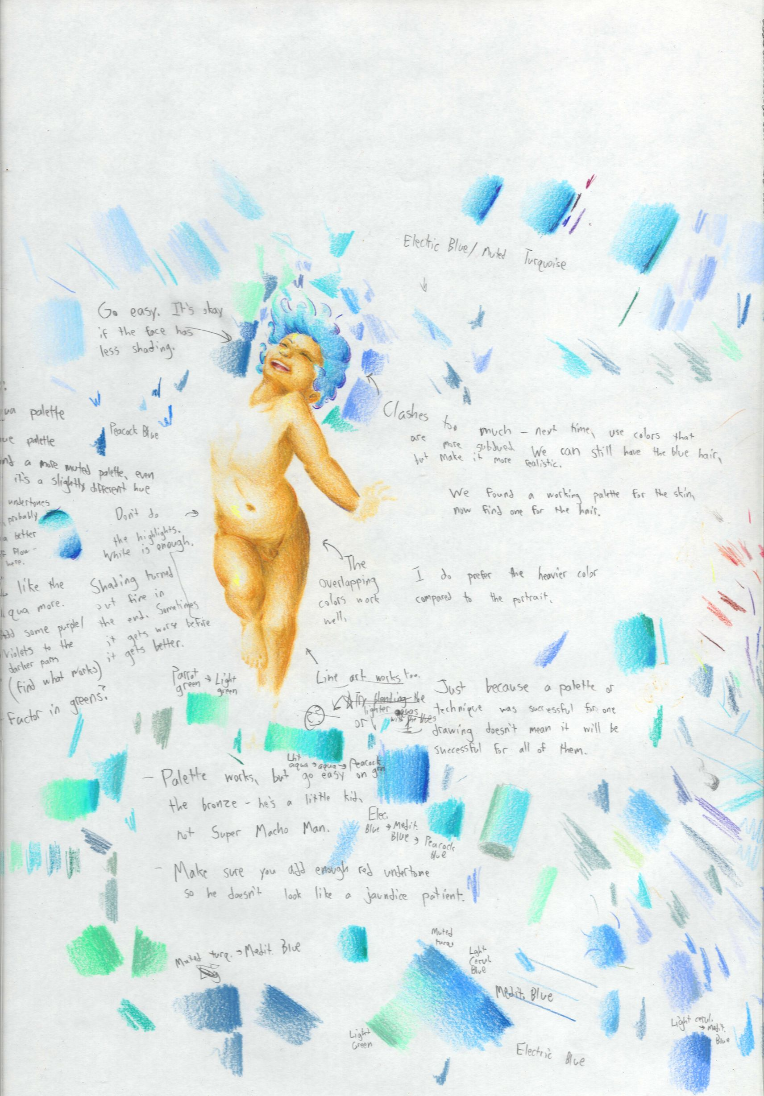 Electric Blue/Muted Turquoise
Go easy. It's okay
if the face has
less shading.
Clashes too much - next time, use colors that
are more subdued. We can still have the blue hair,
but make it more realistic.
We found a working palette for the skin,
now find one for the hair.
palette
palette
Peacock Blue
a more muted palette, even
it's a slightly different hue
undertones
probably
better
Don't do
the highlights.
White is enough.
The
overlapping
colors work
well.
I do prefer the heavier color
compared to the portrait.
like the
aqua more.
Add some purple/
violets to the
darker parts
(find what works)
Factor in greens?
Shading turned
out fine in
the end. Sometimes
it gets worse before
it gets better.
Parrot
green → Light
green
Line art works too.
Try blending the
lighter
or
Just because a palette or
technique was successful for one
drawing doesn't mean it will be
successful for all of them.
aqua → aqua → Peacock
- Palette works, but go easy on
the bronze - he's a little kid,
not Super Macho Man.
Elec.
Blue → Medit.
Blue → Peacock
Blue
- Make sure you add enough red undertone
so he doesn't look like a jaundice patient.
Muted turq. → Medit. Blue
Muted
turq.
Light
Cerul.
Blue
Medit. Blue
Light
Green
Electric Blue
Light cerul.
→ Medit.
Blue